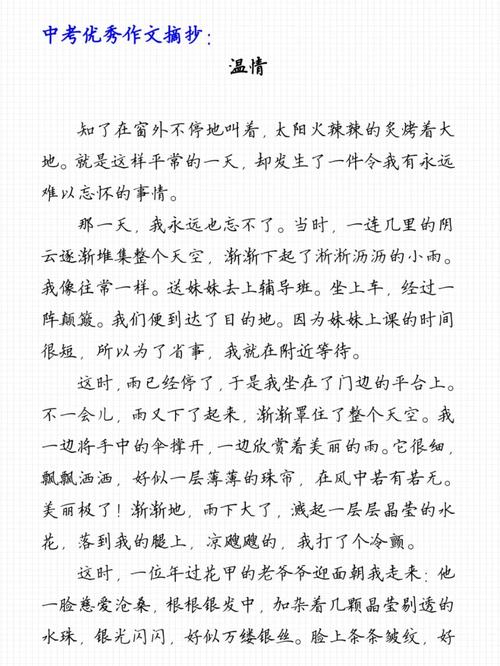 中考优秀作文摘抄：
温情
知了在窗外不停地叫着，太阳火辣辣的炙烤着大
地。就是这样平常的一天，却发生了一件令我有永远
难以忘怀的事情。
那一天，我永远也忘不了。当时，一连几里的阴
云逐渐堆集整个天空，渐渐下起了淅淅沥沥的小雨。
我像往常一样。送妹妹去上辅导班。坐上车，经过一
阵颠簸。我们便到达了目的地。因为妹妹上课的时间
很短，所以为了省事，我就在附近等待。
这时，雨已经停了，于是我坐在了门边的平台上。
不一会儿，雨又下了起来，渐渐罩住了整个天空。我
一边将手中的伞撑开，一边欣赏着美丽的雨。它很细，
飘飘洒洒，好似一层薄薄的珠帘，在风中若有若无。
美丽极了！渐渐地，雨下大了，溅起一层层晶莹的水
花，落到我的腿上，凉飕飕的，我打了个冷颤。
这时，一位年过花甲的老爷爷迎面朝我走来：他
一脸慈爱沧桑，根根银发中，加杂着几颗晶莹剔透的
水珠，银光闪闪，好似万缕银丝。脸上条条皱纹，好